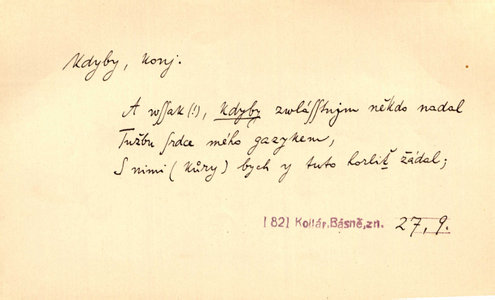 Kdyby, konj.
A wssak (!), kdyby zwlásstnjm někdo nadal
Tužbu srdce mého gazykem,
S nimi (kůry) bych y tuto horliť žádal;
1821 Kollár, Básně, zn. 27, 9.